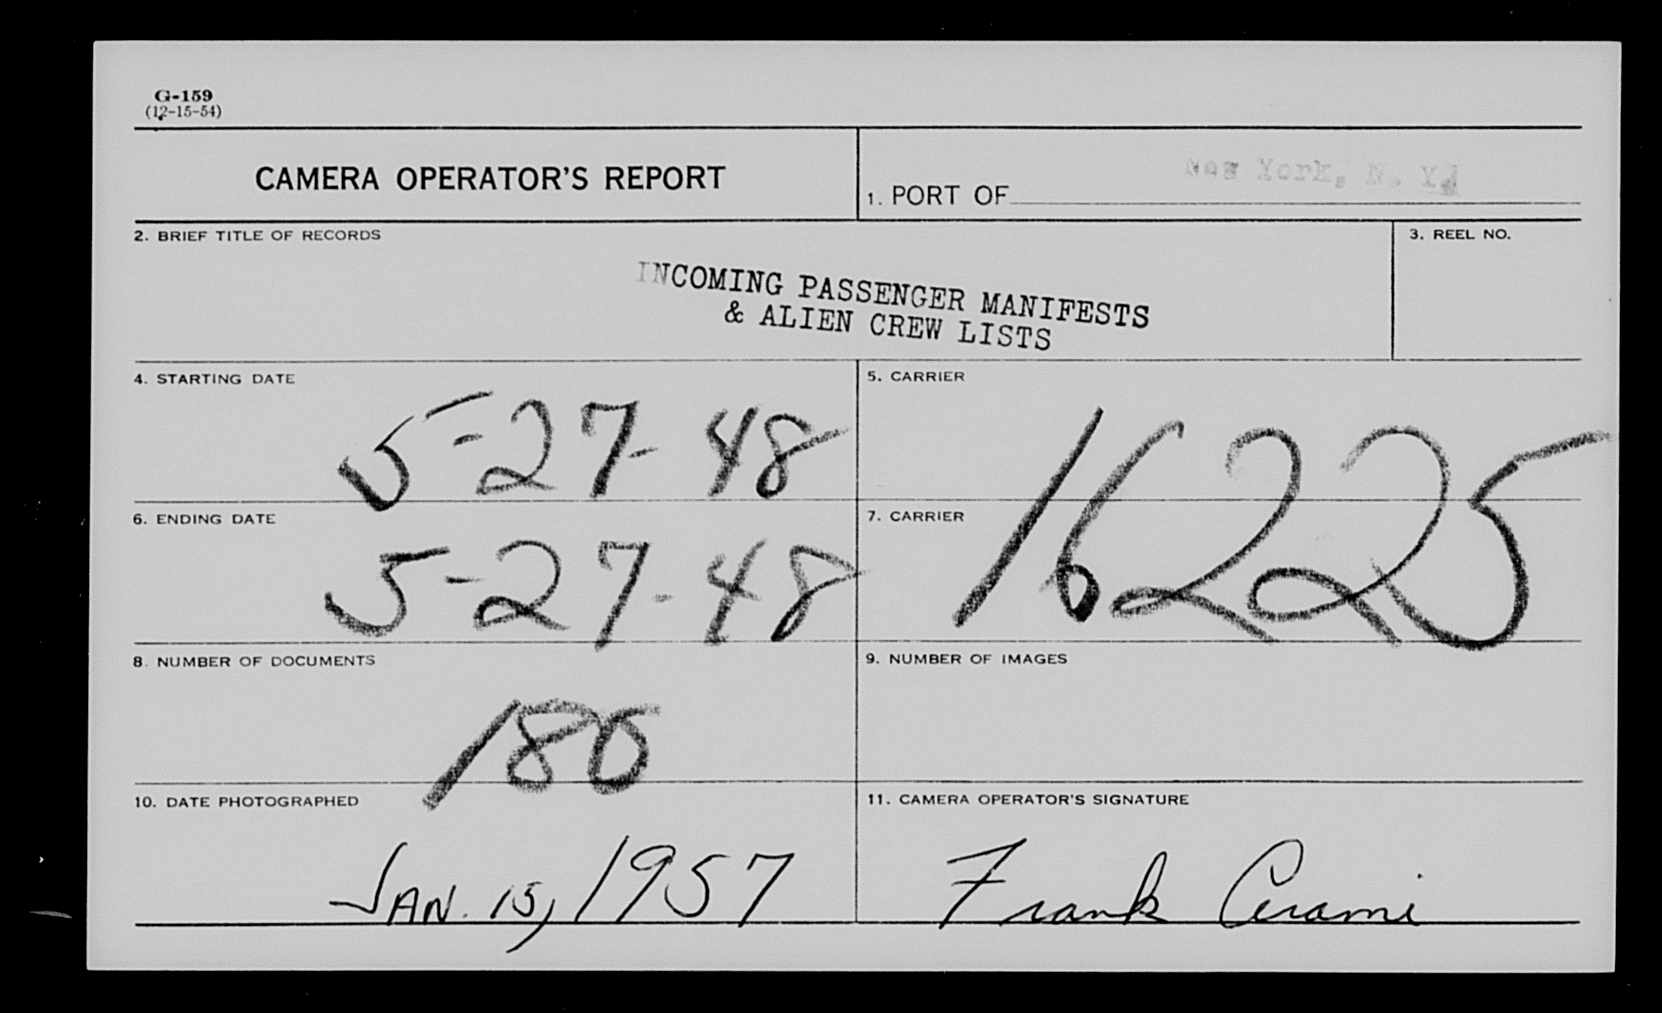 G-159
(12-15-54)
CAMERA OPERATOR'S REPORT
1. PORT OF New York, N. Y.
2. BRIEF TITLE OF RECORDS
3. REEL NO.
INCOMING PASSENGER MANIFESTS
& ALIEN CREW LISTS
4. STARTING DATE
5-27-48
5. CARRIER
16225
6. ENDING DATE
5-27-48
7. CARRIER
8. NUMBER OF DOCUMENTS
180
9. NUMBER OF IMAGES
10. DATE PHOTOGRAPHED
JAN. 15, 1957
11. CAMERA OPERATOR'S SIGNATURE
Frank Cerami